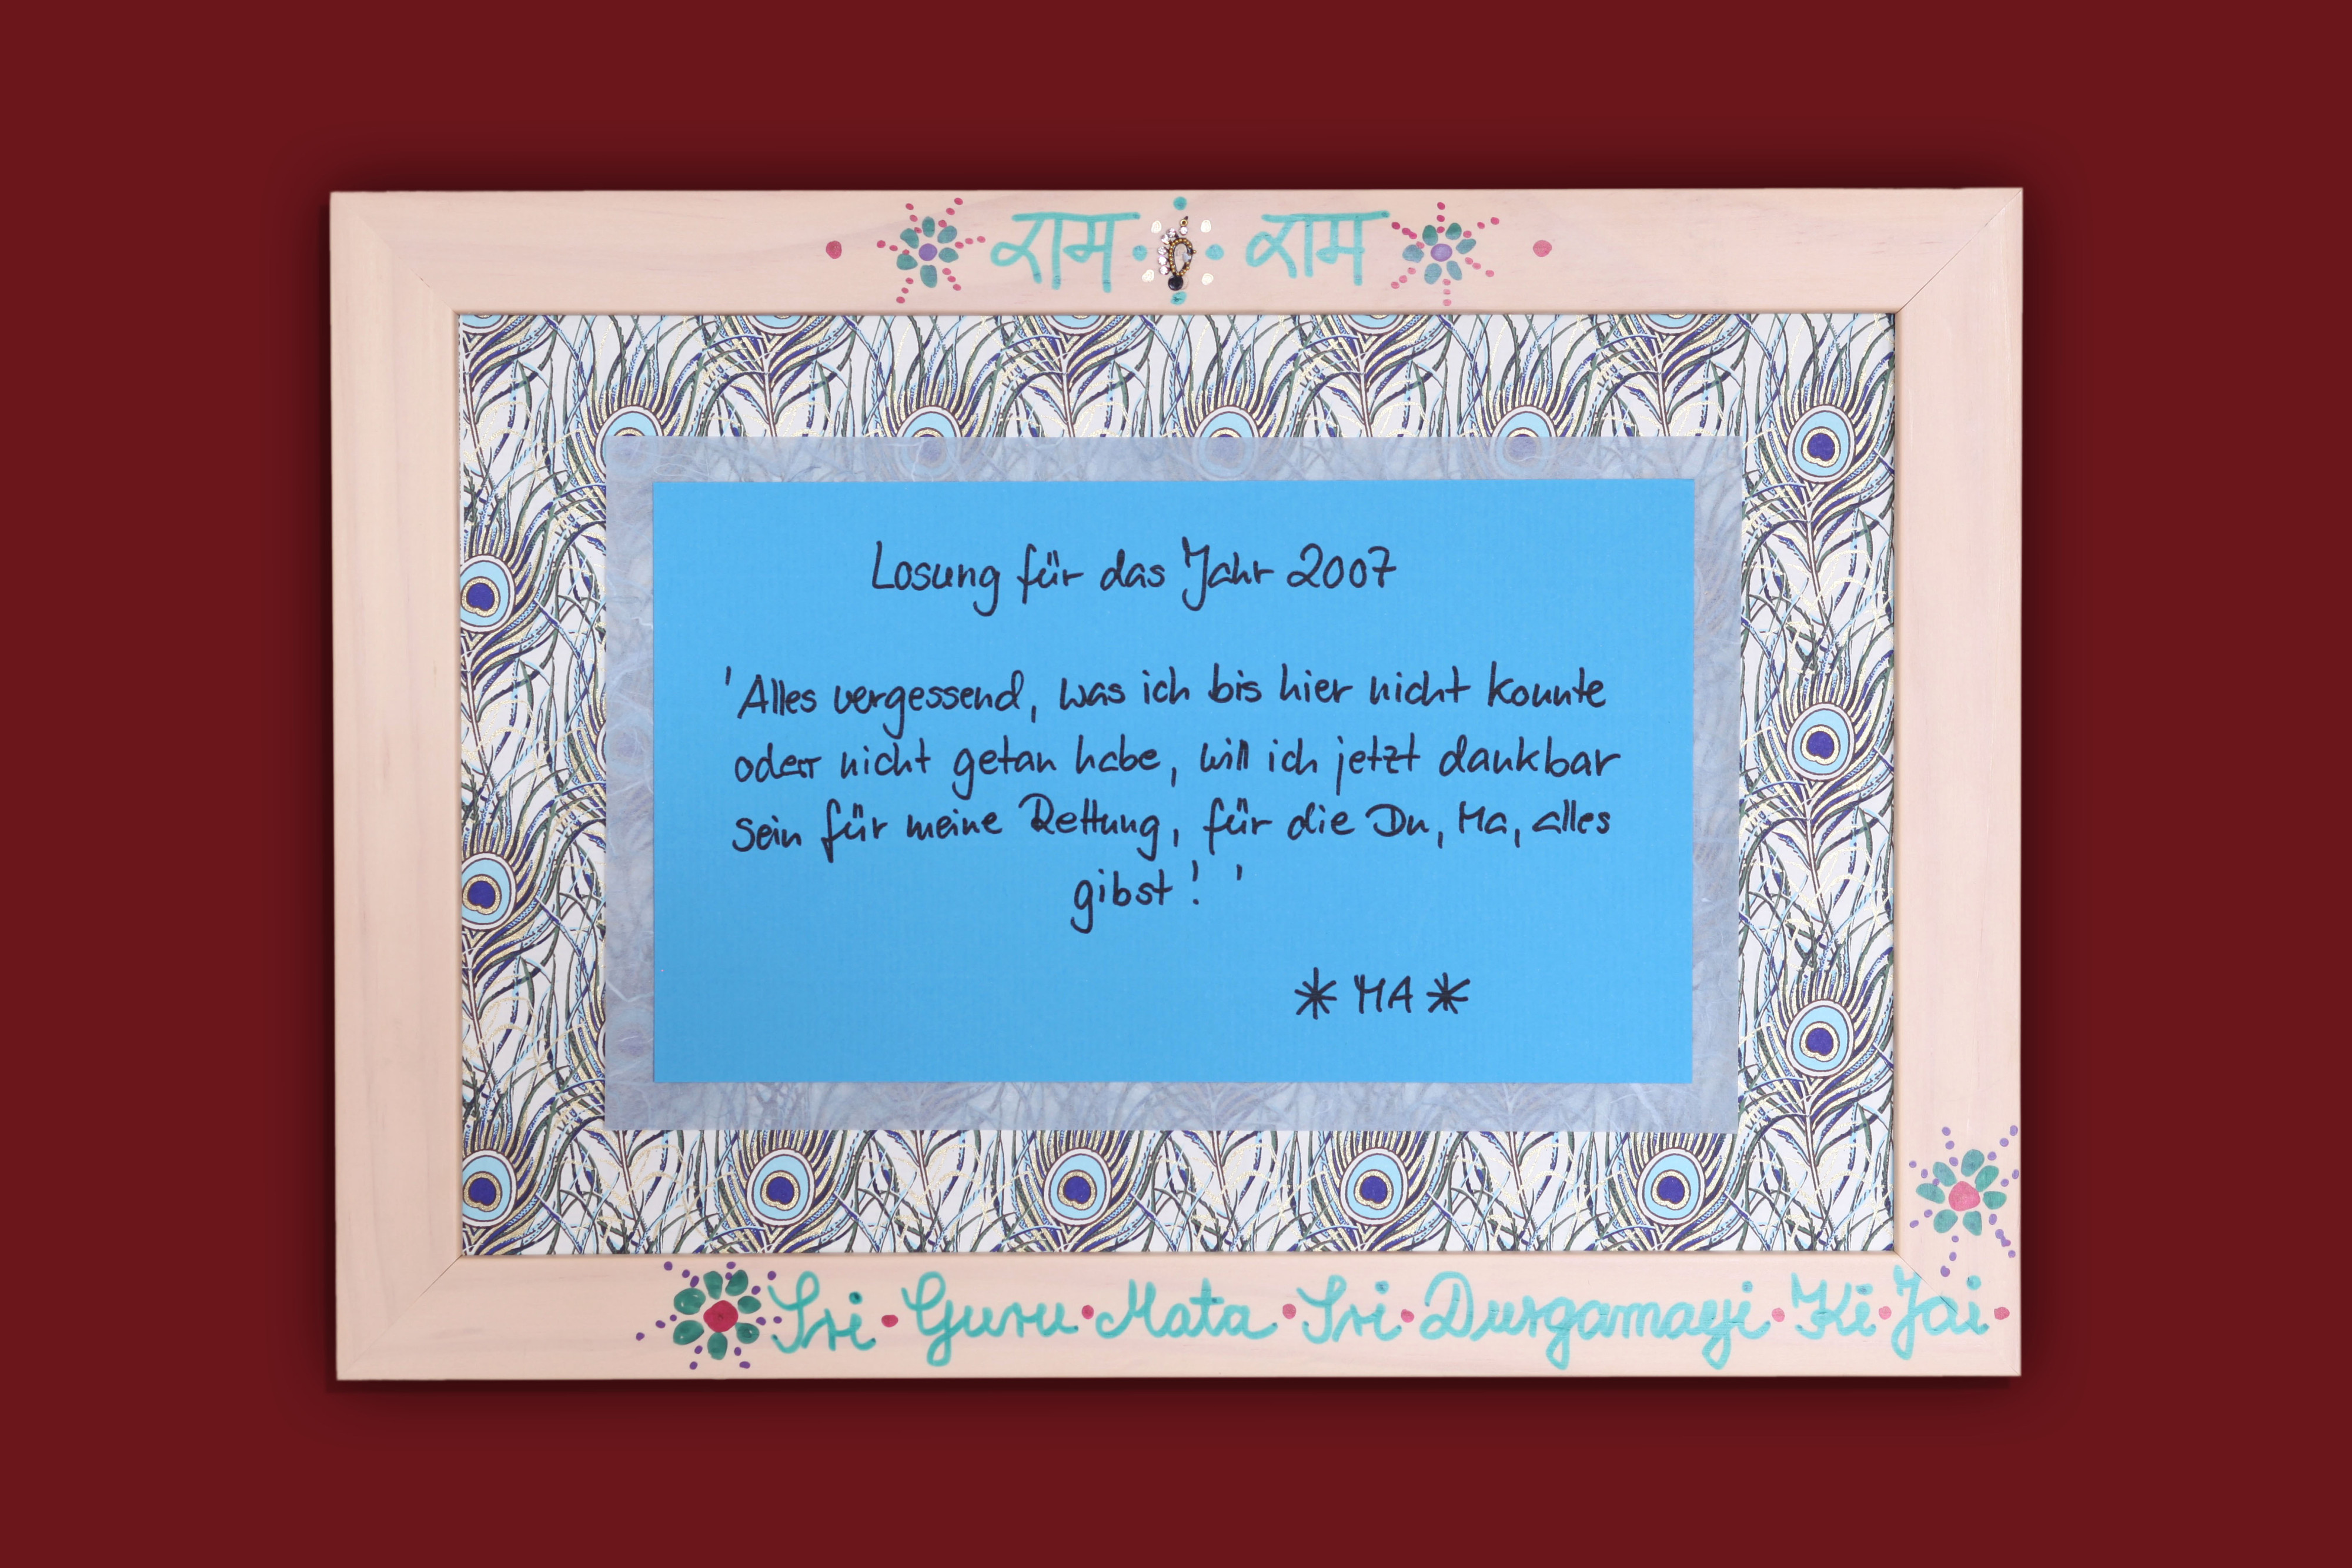 राम राम
Losung für das Jahr 2007
'Alles vergessend, was ich bis hier nicht konnte
oder nicht getan habe, will ich jetzt dankbar
sein für meine Rettung, für die Du, Ma, alles
gibst! '
* MA *
Sri • Guru • Mata • Sri • Durgamayi • Ki • Jai •